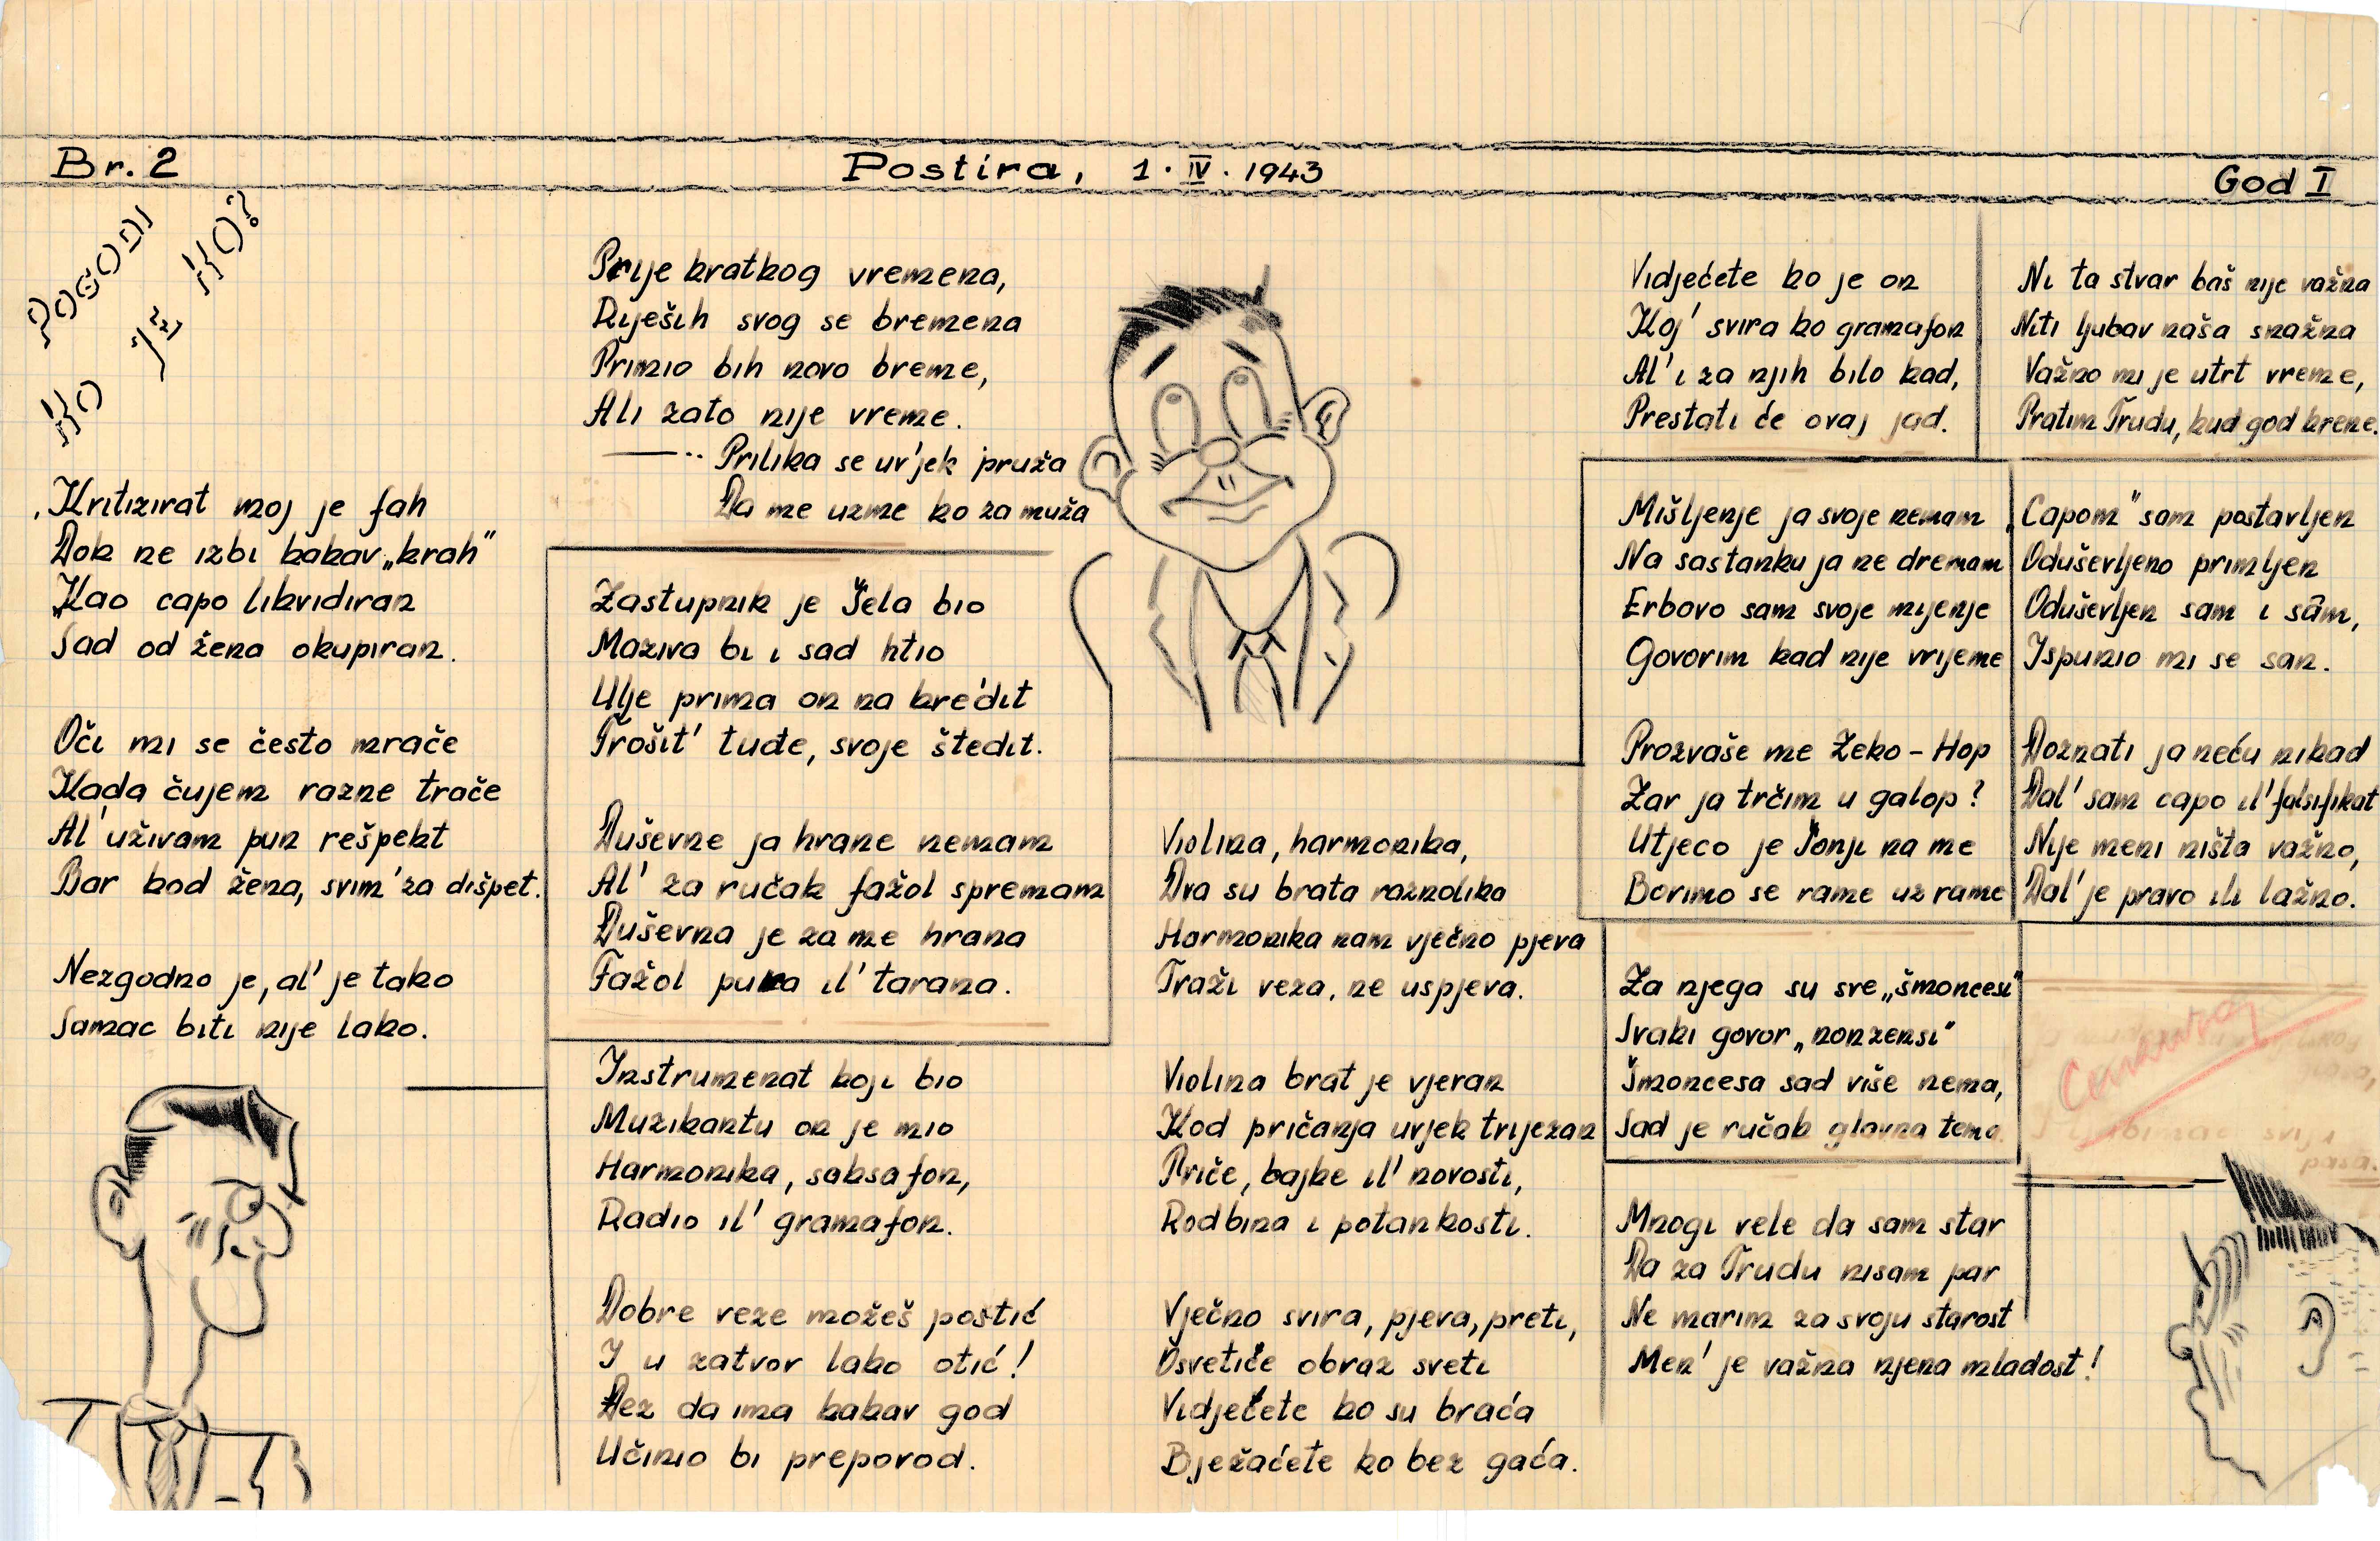 Br. 2
Postira, 1. IV. 1943
God I
Pogodi
tko je tko?
Kritizirat moj je fah
Dok ne izbi kakav „krah"
Kao capo likvidiran
Sad od žena okupiran.
Oči mi se često mrače
Kada čujem razne trače
Al' uživam pun rešpekt
Bar kod žena, svim' za dišpet.
Nezgodno je, al' je tako
Samac biti nije lako.
Prije kratkog vremena,
Riješih svog se bremena
Primio bih novo breme,
Ali zato nije vreme.
—·· Prilika se uv'jek pruža
Da me uzme ko za muža
Zastupnik je Šela bio
Maziva bi i sad htio
Ulje prima on na kredit
Trošit' tuđe, svoje štedit.
Duševne ja hrane nemam
Al' za ručak fažol spremam
Duševna je za me hrana
Fažol pura il' tarana.
Instrumenat koji bio
Muzikantu on je mio
Harmonika, saksafon,
Radio il' gramafon.
Dobre veze možeš postić
I u zatvor lako otić!
Bez da ima kakav god
Učinio bi preporod.
Violina, harmonika,
Dva su brata raznolika
Harmonika nam vječno pjeva
Traži veza, ne uspjeva.
Violina brat je vjeran
Kod pričanja uvjek trijezan
Priče, bajke il' novosti,
Rodbina i potankosti.
Vječno svira, pjeva, preti,
Osvetiće obraz sveti
Vidjećete ko su braća
Bježaćete ko bez gaća.
Vidjećete ko je on
Koj' svira ko gramafon
Al' i za njih bilo kad,
Prestati će ovaj jad.
Mišljenje ja svoje nemam
Na sastanku ja ne dremam
Erbovo sam svoje mijenje
Govorim kad nije vrijeme
Prozvaše me Zeko-Hop
Zar ja trčim u galop?
Utjeco je Šonji na me
Borimo se rame uz rame
Za njega su sve „šmoncesi"
Svaki govor „nonzensi"
Šmoncesa sad više nema,
Sad je ručak glavna tema
Mnogi vele da sam star
Da za Trudu nisam par
Ne marim za svoju starost
Men' je važna njena mladost!
Ni ta stvar baš nije važna
Niti ljubav naša snažna
Važno mi je utrt vreme,
Pratim Trudu, kud god krene.
„Capom" sam postavljen
Oduševljeno primljen
Oduševljen sam i sâm,
Ispunio mi se san.
Doznati ja neću nikad
Dal' sam capo il' falsifikat
Nije meni ništa važno,
Dal' je pravo ili lažno.